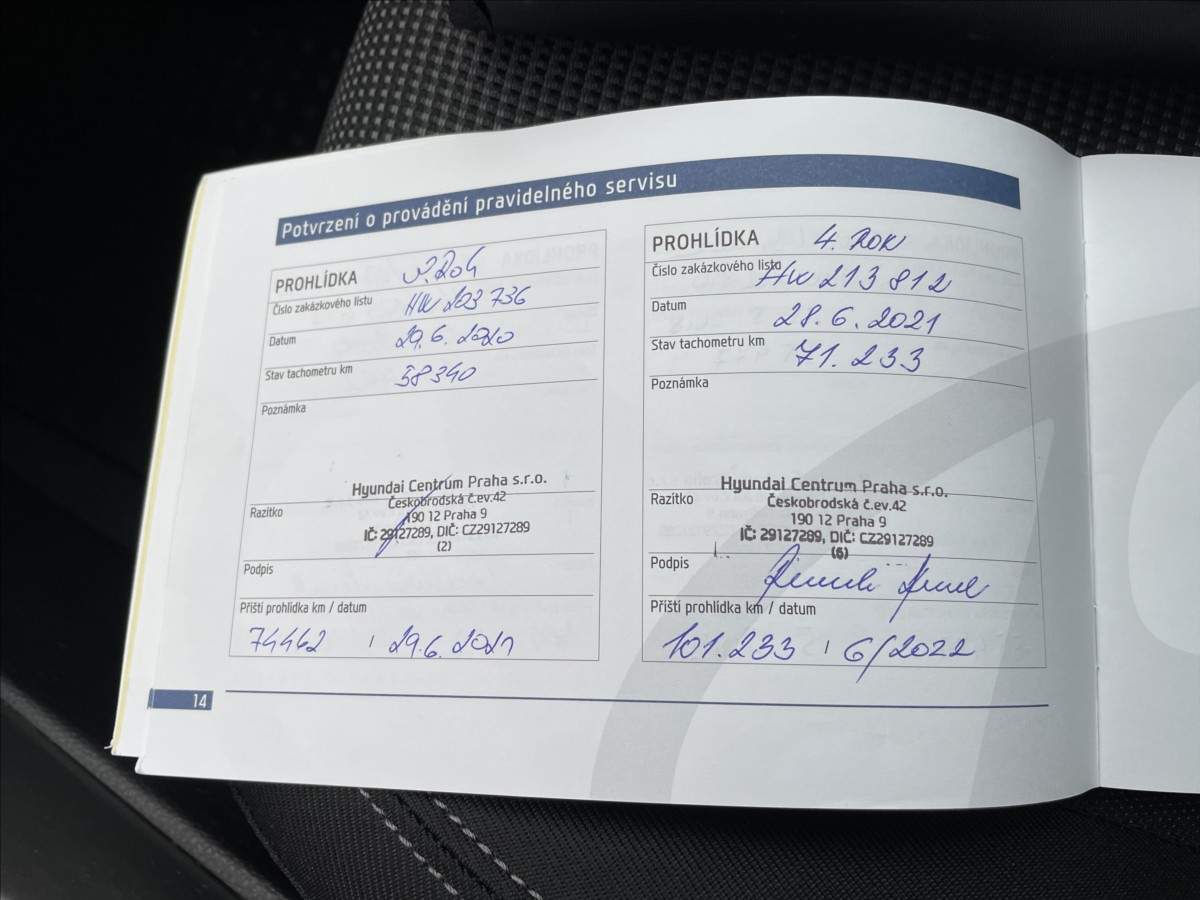 Potvrzení o provádění pravidelného servisu
PROHLÍDKA
Číslo zakázkového listu HW 203 736
Datum 29.6.2020
Stav tachometru km 58340
Poznámka
Hyundai Centrum Praha s.r.o.
Českobrodská č.ev.42
Razítko
190 12 Praha 9
IČ: 29127289, DIČ: CZ29127289
(2)
Podpis
Příští prohlídka km / datum
74462 / 29.6.2021
PROHLÍDKA 4. ROK
Číslo zakázkového listu HW 213 812
Datum 28.6.2021
Stav tachometru km 71.233
Poznámka
Hyundai Centrum Praha s.r.o.
Razítko
Českobrodská č.ev.42
190 12 Praha 9
IČ: 29127289, DIČ: CZ29127289
(6)
Podpis
Příští prohlídka km / datum
101.233 / 6/2022
14